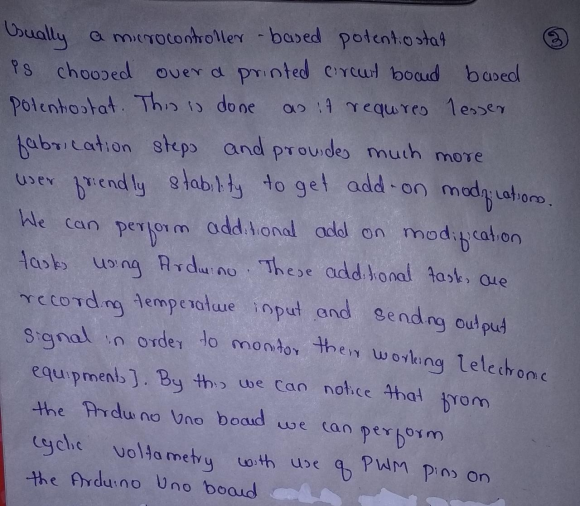 Usually a microcontroller - based potentiostat
②
is choosed over a printed circuit board based
potentiostat. This is done as it requires lesser
fabrication steps and provides much more
user friendly stability to get add-on modifications.
We can perform additional add on modification
tasks using Arduino. These additional tasks are
recording temperature input and sending output
signal in order to monitor their working [electronic
equipments]. By this we can notice that from
the Arduino Uno board we can perform
cyclic voltametry with use of PWM pins on
the Arduino Uno board